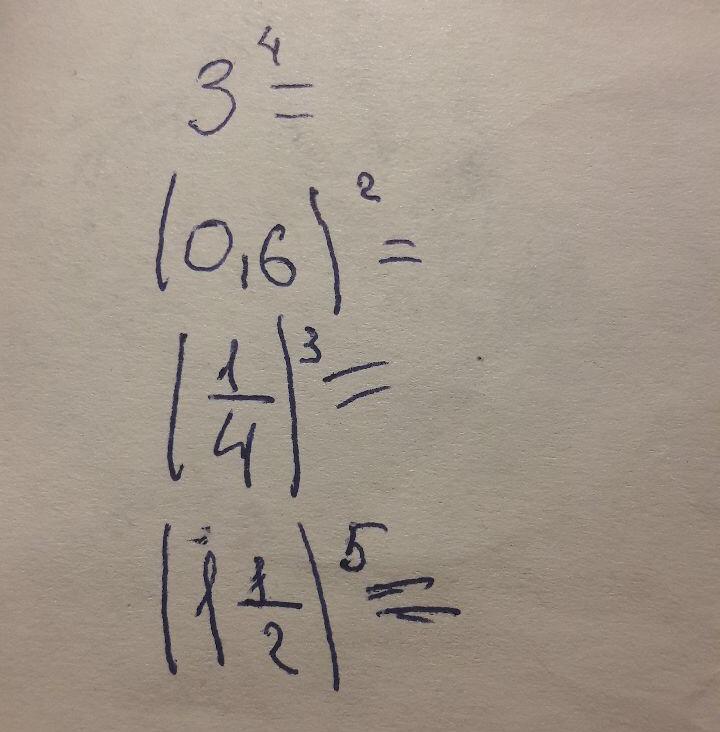 3⁴=
(0,6)²=
(1/4)³=
(1 1/2)⁵=